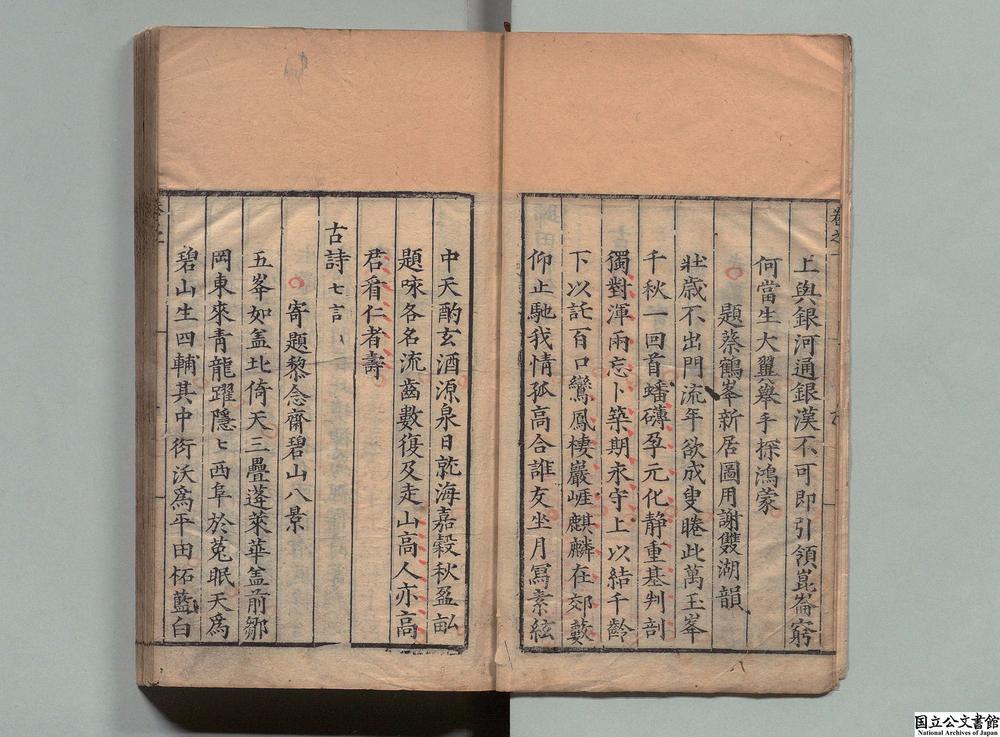 卷之一
上與銀河通銀漢不可即引領崑崙窮
何當生大翼舉手探鴻蒙
題蔡鶴峯新居圖用謝雙湖韻
壯歲不出門流年欲成叟睠此萬玉峯
千秋一回首蟠礴孕元化静重基判剖
獨對渾兩忘卜築期永守上以結千齡
下以託百口鸞鳳棲巖崕麒麟在郊藪
仰止馳我情孤高合誰友坐月冩素絃
中天酌玄酒源泉日就海嘉穀秋盈畝
題咏各名流齒數復及走山高人亦高
君看仁者壽
古詩七言
寄題黎念齋碧山八景
五峯如盖北倚天三疊蓬萊華盖前鄒
岡東來青龍躍隱〻西阜於菟眠天為
碧山生四輔其中衍沃為平田柘藍白
国立公文書館
National Archives of Japan